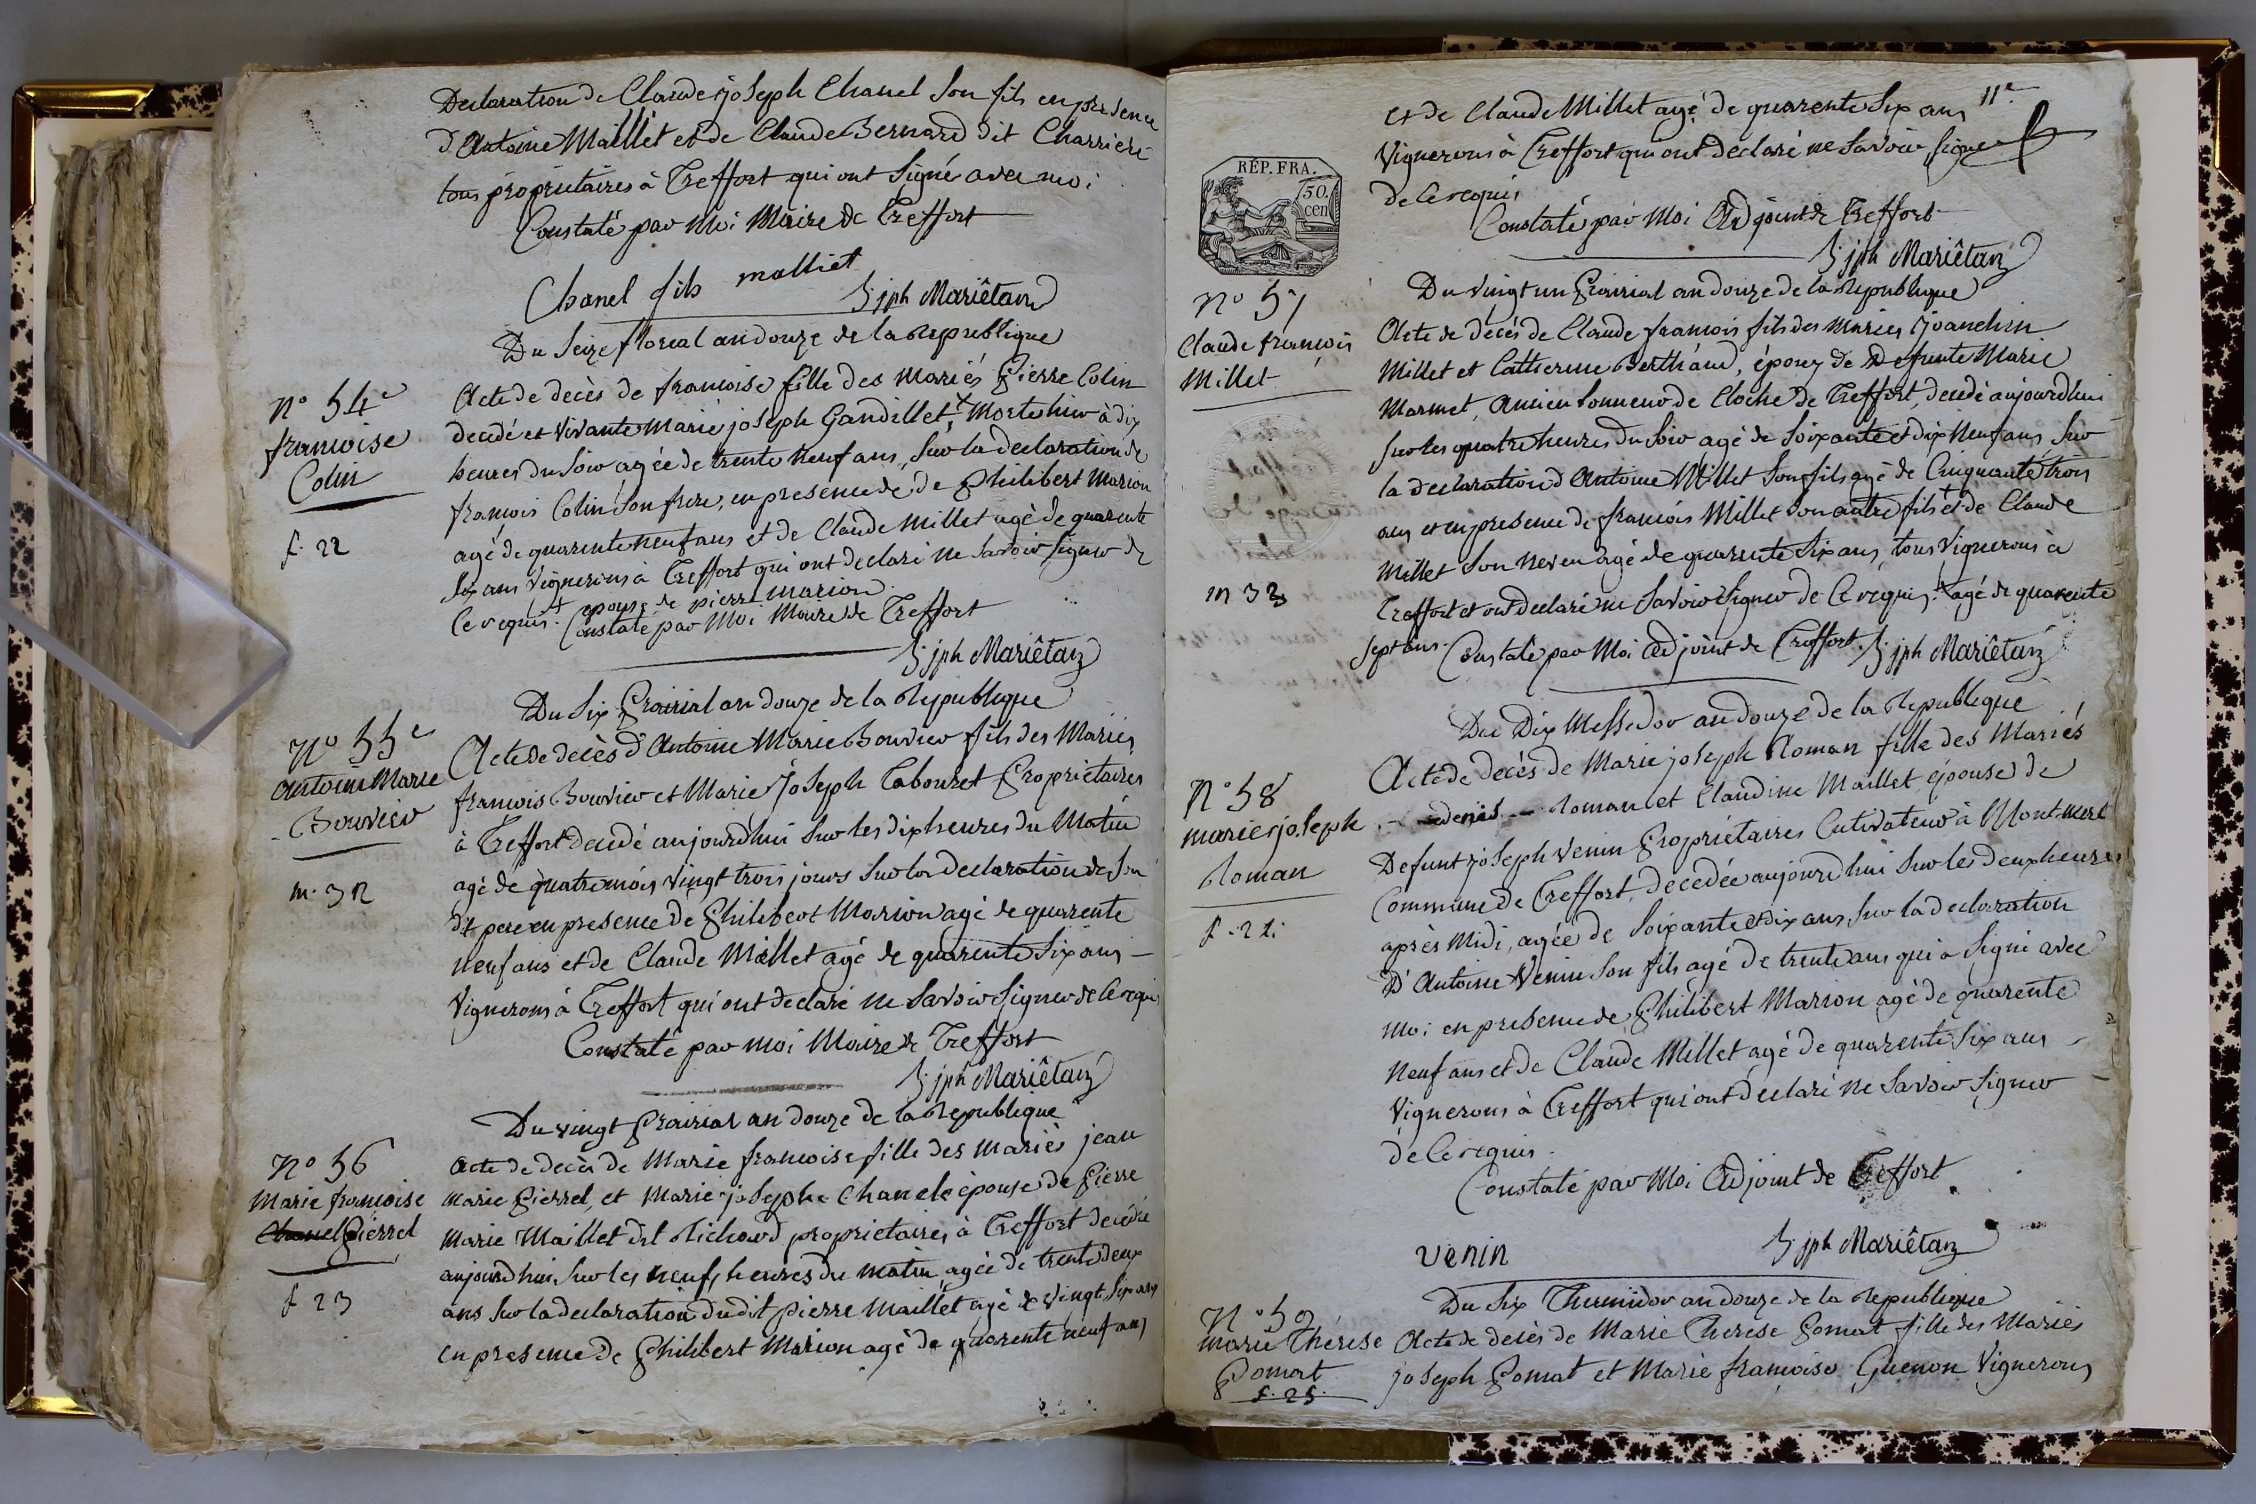 Declaration de Claude joseph Chanel Son fils en presence
d'Antoine Maillet et de Claude Bernard dit Charriere
tous propriétaires à Treffort qui ont Signé avec moi
Constaté par Moi Maire de Treffort
Chanel fils malliet
jph Mariêtan
Du Seize floreal an douze de la Republique
N° 54e
francoise
Colin
f. 22
Acte de decès de francoise fille des Mariés Pierre Colin
decedé et vivante Marie joseph Gandillet, + Morte hier à dix
heures du Soir agée de trente Neuf ans, Sur la declaration de
francois Colin Son frere, en presence de de Philibert Marion
agé de quarente neuf ans et de Claude Millet agé de quarente
Six ans Vignerons à Treffort qui ont declaré ne Savoir Signer de
Ce requis. + epouse de pierre marion
Constaté par Moi Maire de Treffort
jph Mariêtan
Du Six Prairial an douze de la Republique
N° 55e
Antoine Marie
Bouvier
m. 32
Acte de decès d'Antoine Marie Bouvier fils des Mariés
francois Bouvier et Marie Joseph Tabouret Propriétaires
à Treffort decedé aujourdhui Sur les dix heures du Matin
agé de quatre mois vingt trois jours Sur la declaration de Son
dit pere en presence de Philibert Marion agé de quarente
Neuf ans et de Claude Millet agé de quarente Six ans
Vignerons à Treffort qui ont declaré ne Savoir Signer de Ce requis
Constaté par moi Maire de Treffort
jph Mariêtan
Du vingt Prairial an douze de la Republique
N° 56
Marie francoise
Chanel Pierrel
f 23
Acte de decès de Marie francoise fille des mariés jean
marie Pierrel, et Marie josephe Chanel épouse de Pierre
Marie Maillet dit Richard propriétaires à Treffort decedée
aujourdhui Sur les neuf heures du matin agée de trente deux
ans Sur la declaration dudit pierre Maillet agé de vingt Six ans
en presence de Philibert Marion agé de quarente neuf ans
11e
et de Claude Millet agé de quarente Six ans
Vignerons à Treffort qui ont déclaré ne Savoir Signer
de Ce requis
Constaté par Moi Adjoint de Treffort
jph Mariêtan
RÉP. FRA.
50.
cen
Du vingt un Prairial an douze de la Republique
N° 57
Claude françois
Millet
m 33
Acte de decès de Claude francois fils des Mariés Joanchin
Millet et Catherine Berthaud, époux de Defunte Marie
Marmet, Ancien Sonneur de Cloche de Treffort, decedé aujourdhui
Sur les quatre heures du Soir agé de Soixante et dix Neuf ans Sur
la declaration d'Antoine Millet Son fils agé de Cinquante trois
ans et en presence de francois Millet Son autre fils + et de Claude
Millet Son neveu agé de quarente Six ans, tous Vignerons à
Treffort et ont declaré ne Savoir Signer de Ce requis. + agé de quarente
Sept ans. Constaté par Moi Adjoint de Treffort. jph Mariêtan
Du Dix Messidor an douze de la Republique
N° 58
marie joseph
Roman
f. 24
Acte de decès de Marie joseph Roman fille des Mariés
denis Roman et Claudine Maillet épouse de
Defunt joseph Venin Propriétaires Cutivateur à Montmerl
Commune de Treffort, decedée aujourdhui Sur les deux heures
après Midi, agée de Soixante et dix ans, Sur la declaration
D'Antoine Venin Son fils agé de trente ans qui a Signé avec
moi en presence de Philibert Marion agé de quarente
Neuf ans et de Claude Millet agé de quarente Six ans
Vignerons à Treffort qui ont declaré ne Savoir Signer
de Ce requis.
Constaté par Moi Adjoint de Treffort
venin
jph Mariêtan
Du Six Thermidor an douze de la Republique
N° 59
Marie Thérese
Pomat
f. 25.
Acte de decès de Marie Therese Pomat fille des Mariés
joseph Pomat et Marie francoise Guenon Vignerons